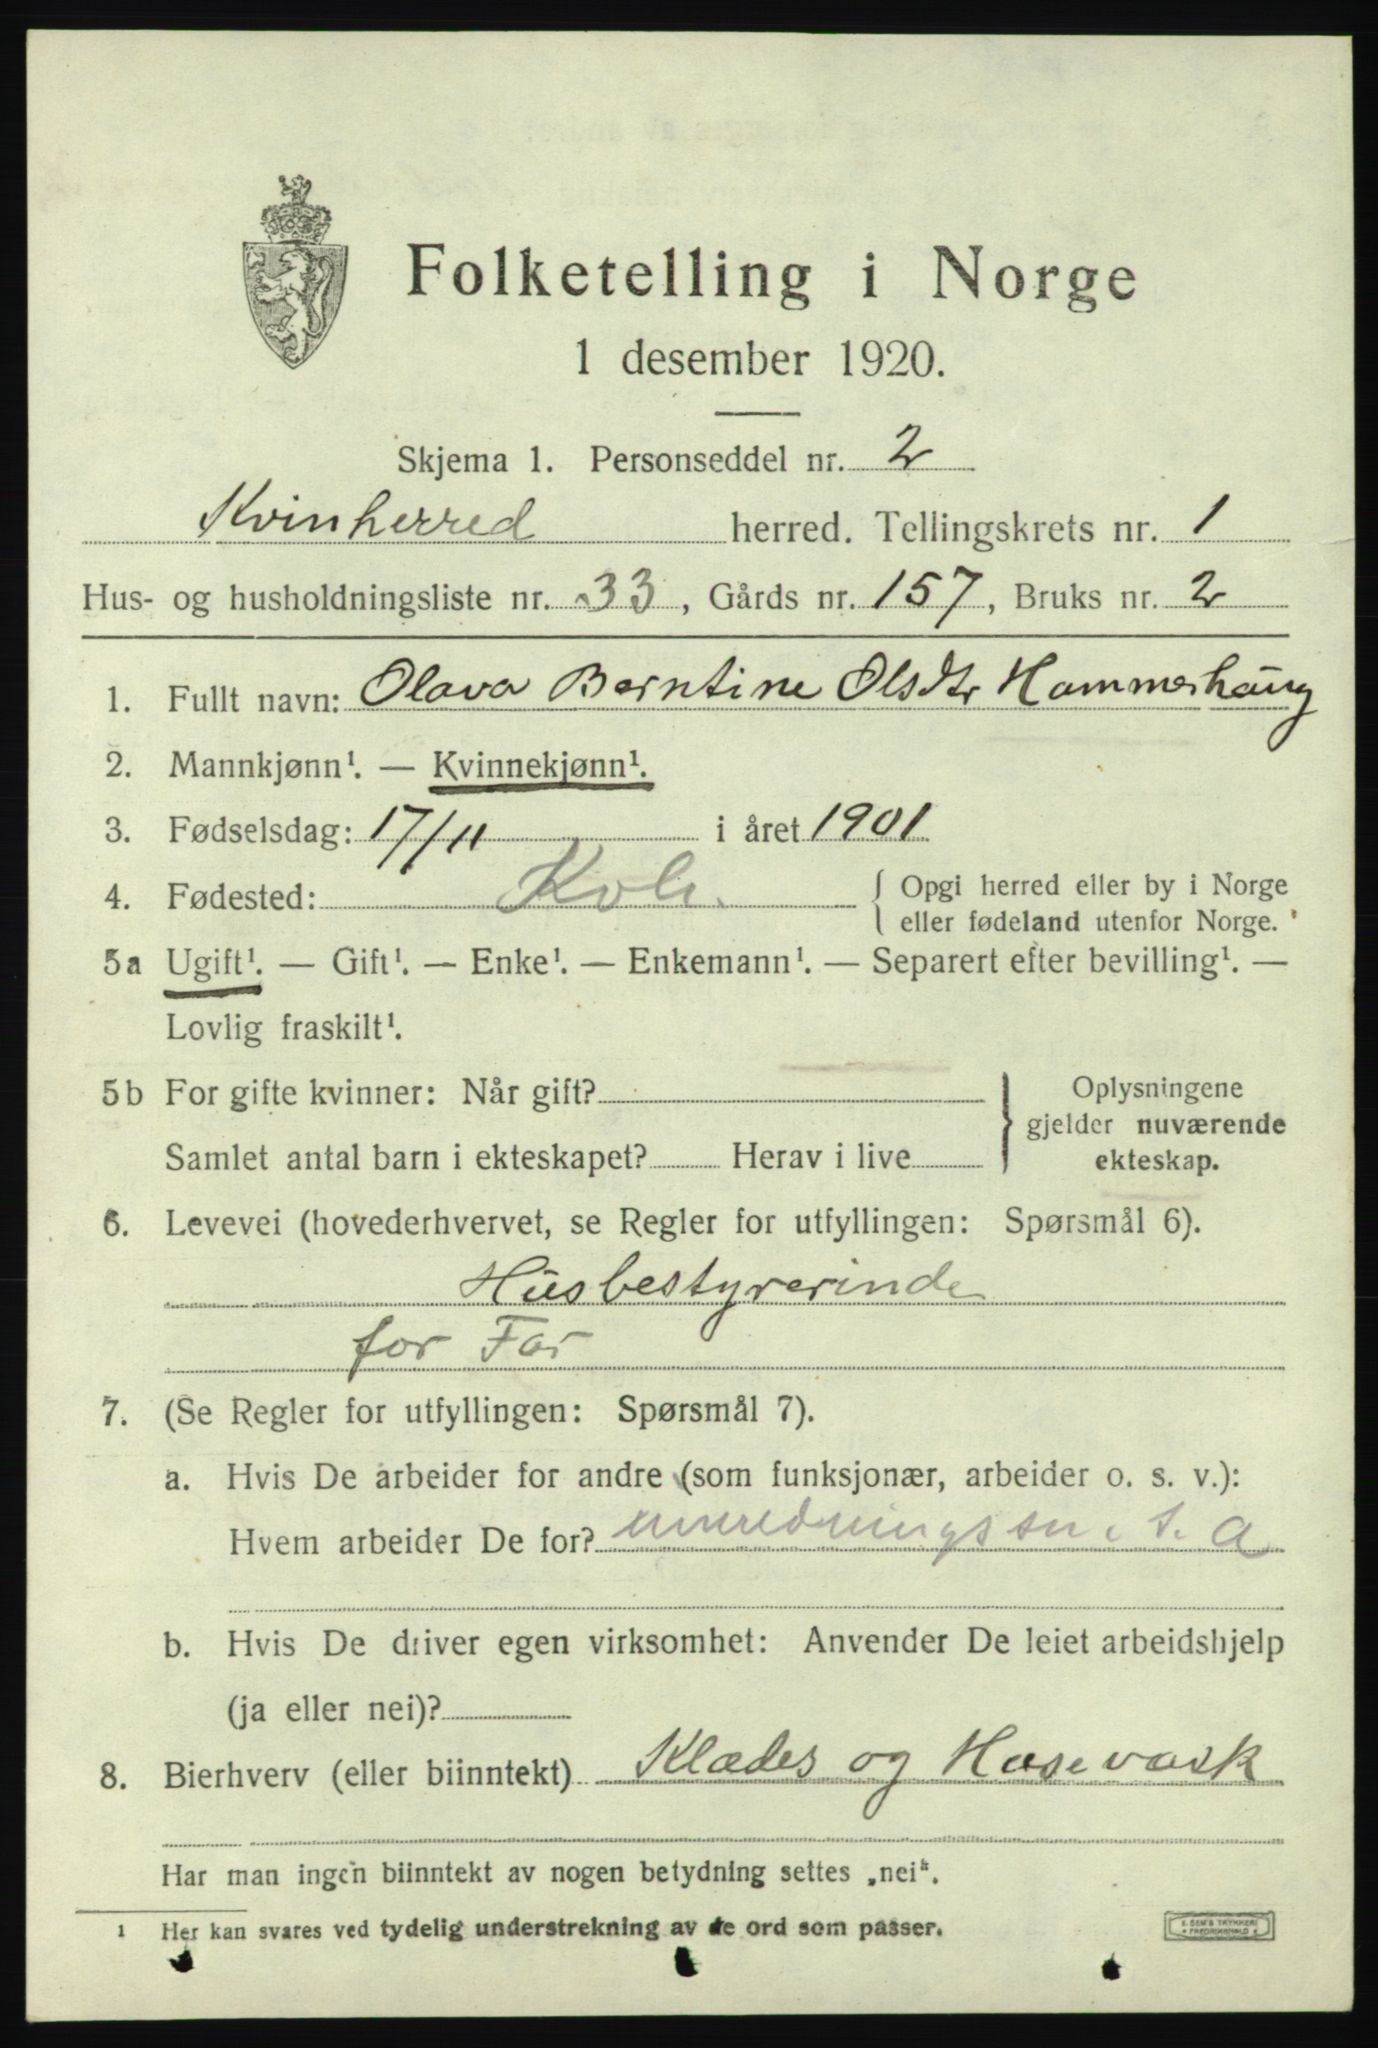 Folketelling i Norge
1 desember 1920.
Skjema 1. Personseddel nr. 2
Kvinherred herred. Tellingskrets nr. 1
Hus- og husholdningsliste nr. 33, Gårds nr. 157, Bruks nr. 2
1. Fullt navn: Olava Berntine Olsdtr Hammerhaug
2. Mannkjønn¹. — Kvinnekjønn¹.
3. Fødselsdag: 17/11 i året 1901
4. Fødested: Kvh. { Opgi herred eller by i Norge
eller fødeland utenfor Norge.
5a Ugift¹. — Gift¹. — Enke¹. — Enkemann¹. — Separert efter bevilling¹. —
Lovlig fraskilt¹.
5b For gifte kvinner: Når gift? } Oplysningene
gjelder nuværende
Samlet antal barn i ekteskapet? Herav i live ekteskap.
6. Levevei (hovederhvervet, se Regler for utfyllingen: Spørsmål 6).
Husbestyrerinde
for Far
7. (Se Regler for utfyllingen: Spørsmål 7).
a. Hvis De arbeider for andre (som funksjonær, arbeider o. s. v.):
Hvem arbeider De for?
b. Hvis De driver egen virksomhet: Anvender De leiet arbeidshjelp
(ja eller nei)?
8. Bierhverv (eller biinntekt) Klædes og Hosevask
Har man ingen biinntekt av nogen betydning settes „nei“.
¹ Her kan svares ved tydelig understrekning av de ord som passer.